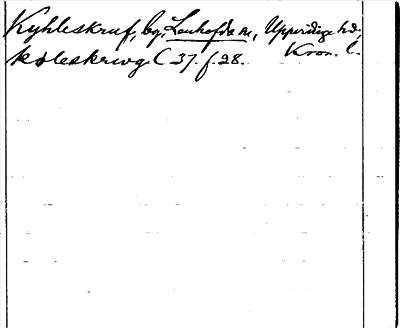 Kyhleskruf, by, Lenhofda sn, Uppvidinge hd,
Kron. l.
koleskrwg C 37. f. 28.